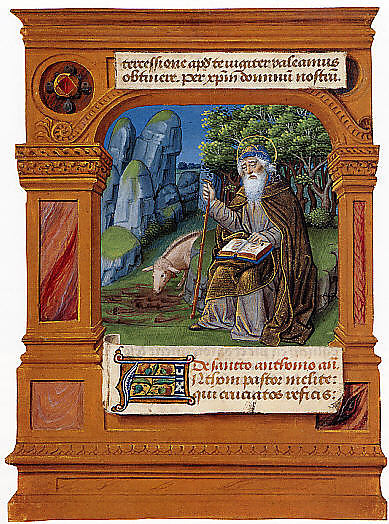 terressione apd te iugiter valeamus
obtinere. per xpm dominum nostrum
De sancto anthonio an.
Anthoni pastor inclite:
qui cruciatos reficis: